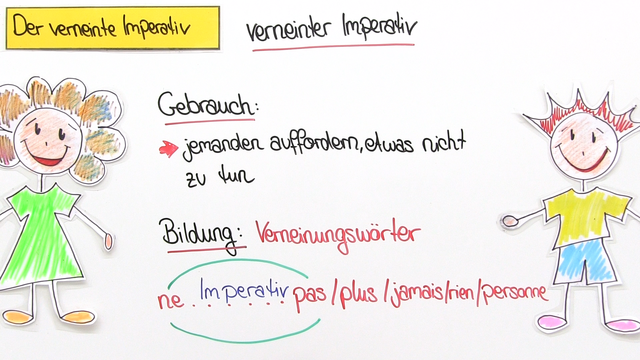 Der verneinte Imperativ
verneinter Imperativ
Gebrauch:
jemanden auffordern, etwas nicht
zu tun
Bildung: Verneinungswörter
ne . Imperativ . pas / plus / jamais / rien / personne